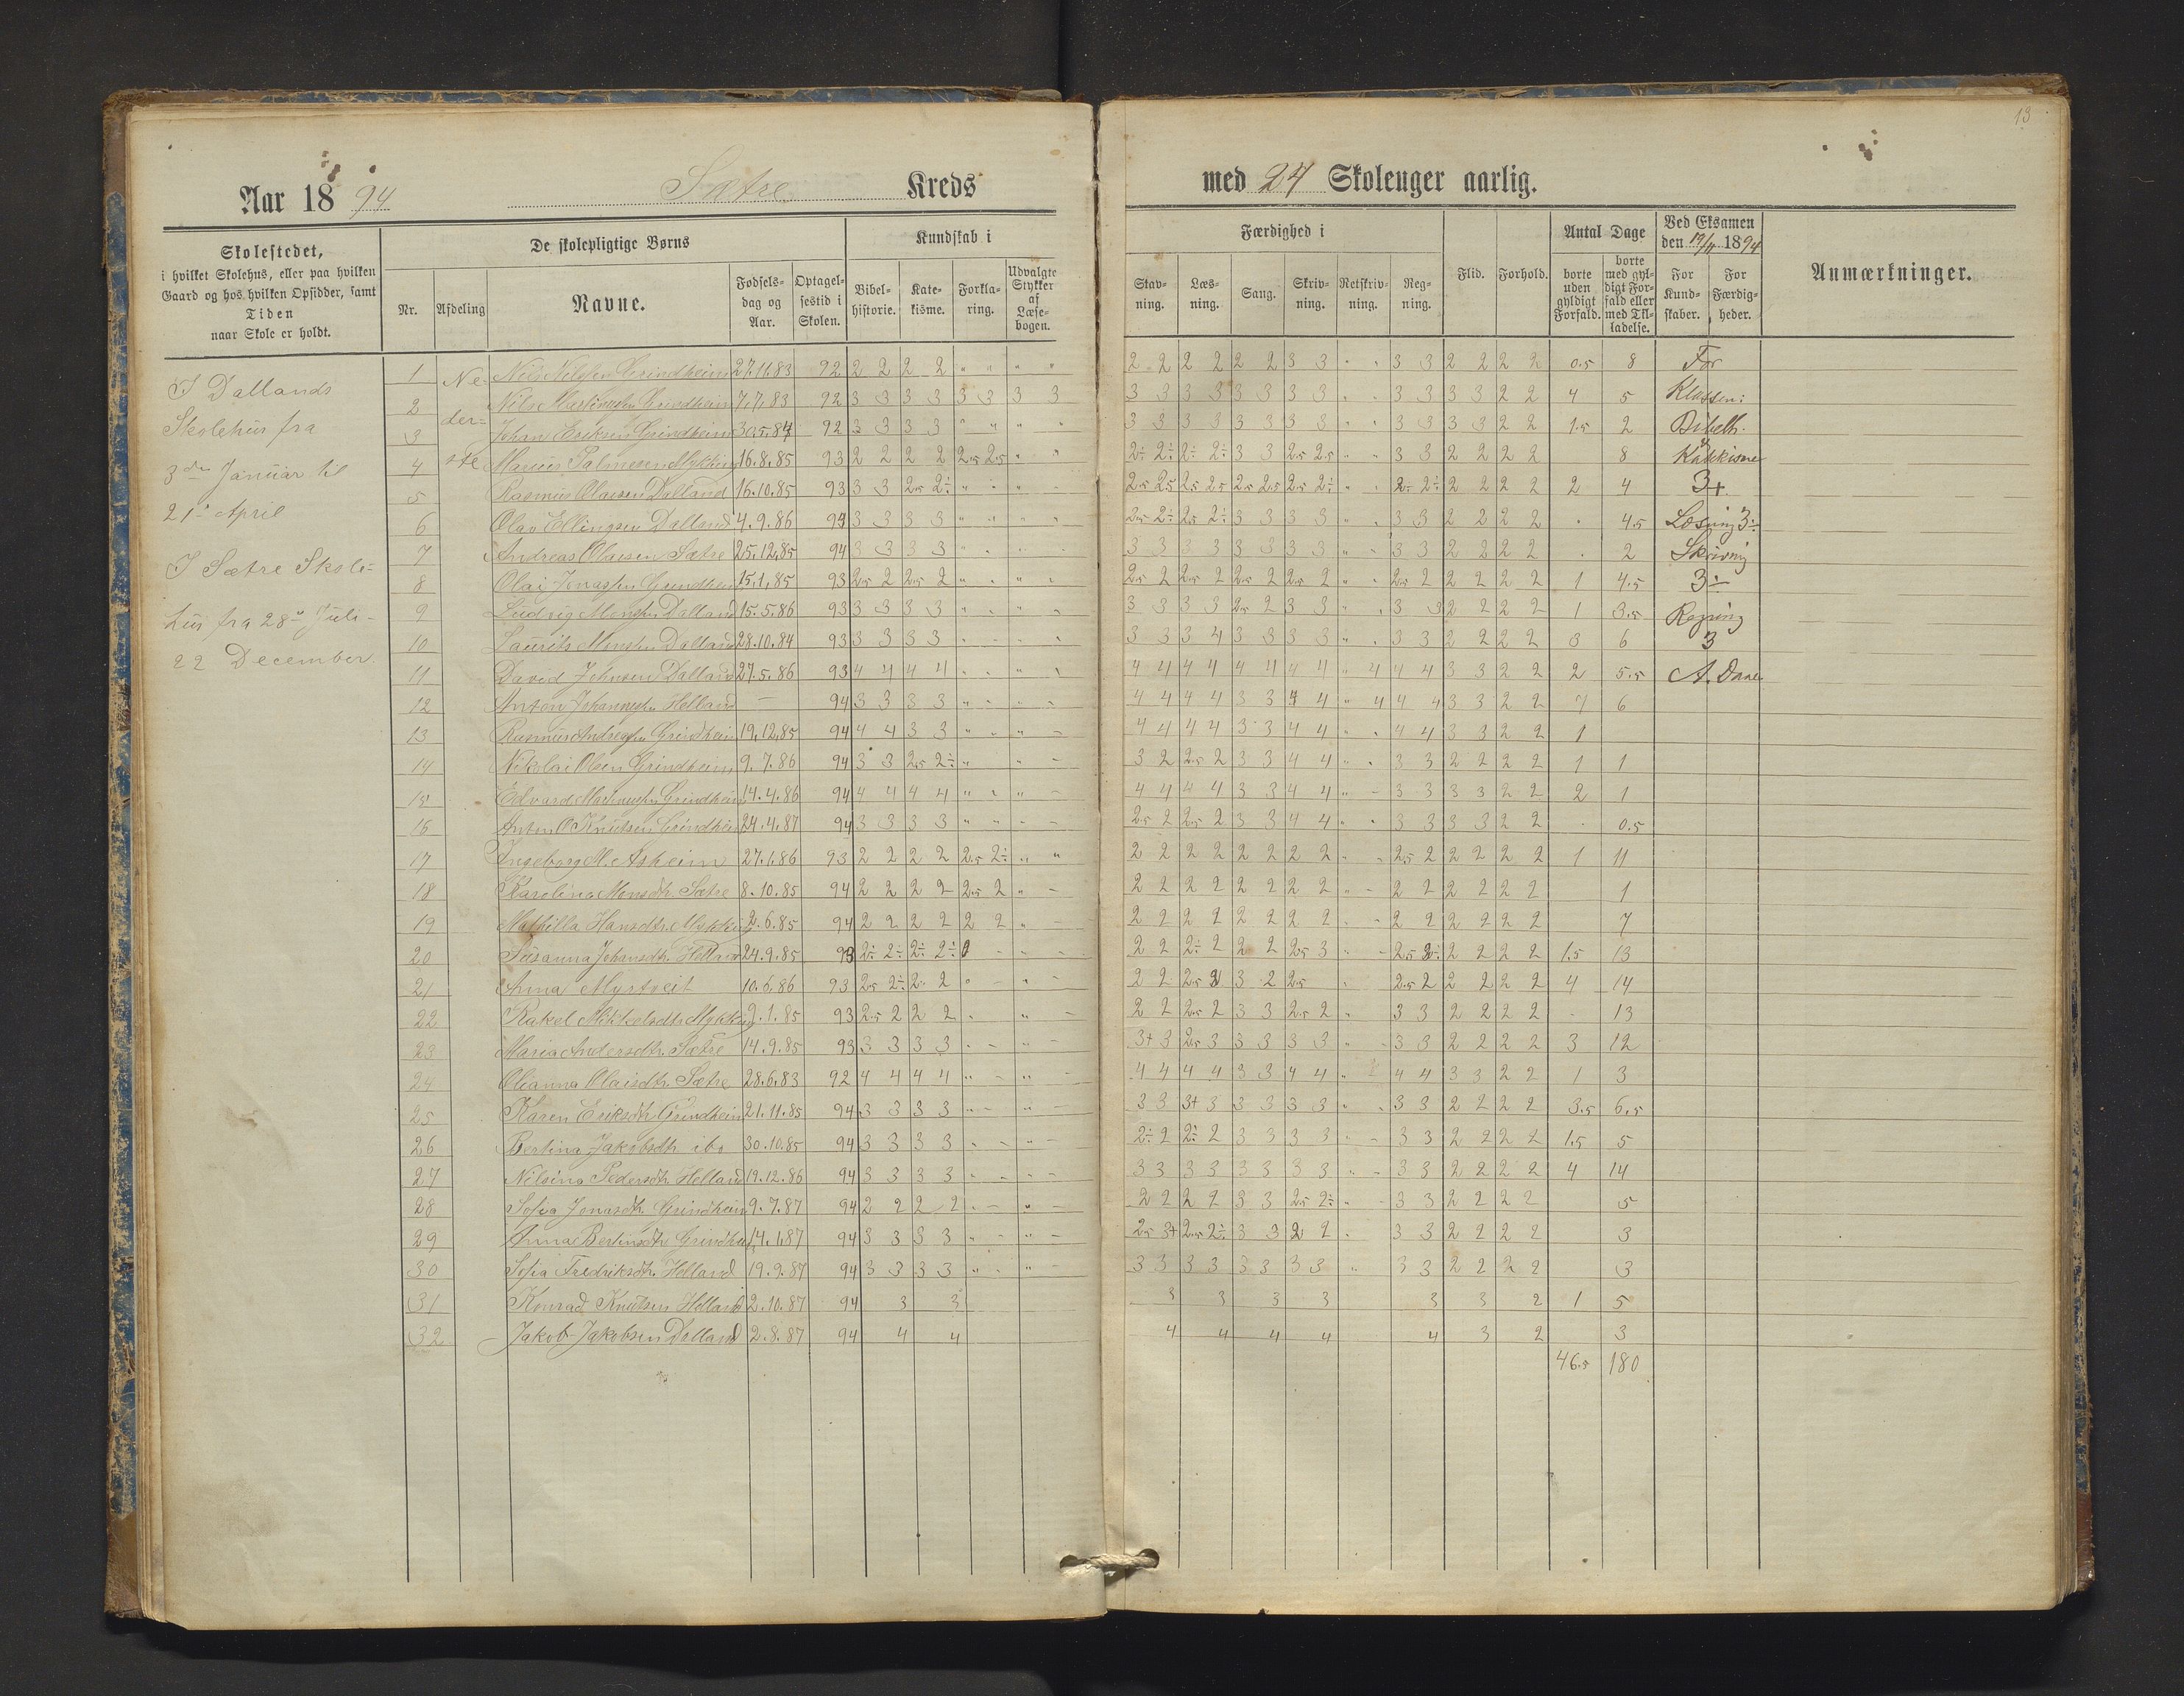 13
Aar 1894 Sætre Kreds med 24 Skoleuger aarlig.
Skolestedet,
i hvilket Skolehus, eller paa hvilken
Gaard og hos hvilken Opsidder, samt
Tiden
naar Skole er holdt.
De skolepligtige Børns
Nr. Afdeling Navne. Fødselsdag og Aar. Optagelsestid i Skolen.
Kundskab i
Bibelhistorie. Katekisme. Forklaring. Udvalgte Stykker af Læsebogen.
Færdighed i
Stavning. Læsning. Sang. Skrivning. Retskrivning. Regning.
Flid. Forhold.
Antal Dage
borte uden gyldigt Forfald. borte med gyldigt Forfald eller med Tilladelse.
Ved Eksamen den 19/11 1894
For Kundskaber. For Færdigheder.
Anmærkninger.
I Dallands
Skolehus fra
3die Januar til
21de April
I Sætre Skole=
hus fra 28de Juli-
22 December
Ne-
der=
ste
1 Nils Nilsen Grindheim 27.11.83 92 2 2 2 2 " " " " 2 2 2 2 2 2 3 3 " " 3 3 2 2 2 2 0.5 8
2 Nils Martinussen Grindheim 7.7.83 92 3 3 3 3 3 3 3 3 3 3 3 3 3 3 3 3 " " 3 3 3 3 2 2 4 5
3 Johan Eriksen Grindheim 30.5.84 92 3 3 3 3 " " " " 3 3 3 3 3 3 3 3 " " 3 3 3 3 2 2 1.5 2
4 Marius Salmesen Mykking 16.8.85 93 2 2 2 2 2.5 2.5 " " 2÷ 2÷ 2÷ 2÷ 3 3 2.5 2.5 " " 3 3 2 2 2 2 8
5 Rasmus Olaesen Dalland 16.10.85 93 3 3 2.5 2÷ " " " - 2.5 2.5 2.5 2.5 2.5 2.5 2.5 2÷ " " 2÷ 2÷ 2 2 2 2 2 4
6 Olav Ellingsen Dalland 4.9.86 94 3 3 3 3 " " " " 2.5 2÷ 2.5 2÷ 3 3 3 3 " " 3 3 2 2 2 2 4.5
7 Andreas Olaesen Sætre 25.12.85 94 3 3 3 3 3 3 3 3 3 3 3 3 " " 3 3 2 2 2 2 2
8 Olai Jonassen Grindheim 15.1.85 93 2.5 2 2.5 2 " " " " 2.5 2 2.5 2 2.5 2 2.5 2 " " 2.5 2 2 2 2 2 1 4.5
9 Ludvig Monssen Dalland 15.5.86 93 3 3 3 3 3 3 3 3 2.5 2 3 3 " " 3 3 2 2 2 2 1 3.5
10 Laurits Monssen Dalland 28.10.84 93 3 3 3 3 3 3 3 4 3 3 3 3 " " 3 3 2 2 2 2 3 6
11 David Johnsen Dalland 27.5.86 93 4 4 4 4 4 4 4 4 4 4 4 4 " 4 4 4 3 3 2 2 2 5.5
12 Anton Johannessen Helland - 94 3 3 3 3 4 4 4 4 3 3 4 4 " 4 4 4 3 3 2 2 7 6
13 Rasmus Andreassen Grindheim 19.12.85 94 4 4 3 3 4 4 4 4 3 3 4 4 " " 4 4 3 3 2 2 1
14 Nikolai Olsen Grindheim 9.7.86 94 3 3 2.5 2÷ 3 2 2.5 2 3 3 4 4 " " 3 3 2 2 2 2 1 1
15 Edvard Martinussen Grindheim 14.4.86 94 4 4 4 4 4 4 4 4 3 3 4 4 " - 3 3 3 3 2 2 2 1
16 Anton O Knutsen Grindheim 24.4.87 94 3 3 3 3 2.5 2 2.5 2 3 3 4 4 " " 3 3 3 3 2 2 0.5
17 Ingeborg M. Asheim 27.1.86 93 2 2 2 2 2.5 2÷ " " 2 2 2 2 2 2 2 2 " " 2.5 2 2 2 2 2 1 11
18 Karolina Monsdtr. Sætre 8.10.85 94 2 2 2 2 2.5 2 " - 2 2 2 2 2 2 2 2 " - 2 2 2 2 2 2 1
19 Mathilla Hansdtr. Mykking 2.6.85 94 2 2 2 2 2 2 " - 2 2 2 2 2 2 2 2 " " 2 2 2 2 2 2 7
20 Susanna Johansdtr. Helland 24.9.85 93 2÷ 2÷ 2÷ 2÷ 0 - - - 2 2 2÷ 2 2 2 2.5 3 " - 2.5 2÷ 2 2 2 2 1.5 13
21 Anna Myrtveit 10.6.86 93 2.5 2÷ 2 2 2 2 2.5 2 3 2 2.5 2.5 2 2 2 2 2 4 14
22 Rakel Mikkelsdtr. Mykking 9.1.85 93 2.5 2 2 2 2 2 2.5 2 3 3 2.5 2 " 3 3 2 2 2 2 13
23 Maria Andersdtr. Sætre 14.9.85 93 3 3 3 3 3+ 3 2.5 3 3 3 3 3 " - 3 3 2 2 2 2 3 12
24 Olianna Olaisdtr. Sætre 28.6.83 92 4 4 4 4 4 4 4 4 3 3 4 4 " 4 4 3 3 2 2 1 3
25 Karen Eriksdtr. Grindheim 21.11.85 94 3 3 3 3 3 3 3+ 3 3 3 3 3 " " 3 3 2 2 2 2 3.5 6.5
26 Bertina Jakobsdtr. ibo 30.10.85 94 3 3 3 3 2÷ 2 2÷ 2 3 3 3 3 " - 3 3 2 2 2 2 1.5 5
27 Nilsina Pedersdtr. Helland 19.12.86 94 3 3 3 3 3 3 3 3 3 3 3 3 " - 3 3 2 2 2 2 4 14
28 Sofia Jonasdtr. Grindheim 9.7.87 94 2 2 2 2 2 2 2 2 3 3 2.5 2÷ " - 3 3 2 2 2 2 5
29 Anna Bertinsdtr. Grindheim 14.1.87 94 3 3 3 3 2.5 3+ 2.5 2÷ 3 3 2 2 3 3 2 2 2 2 3
30 Sofia Fredriksdtr. Helland 19.9.87 94 3 3 3 3 3 3 3 3 3 3 3 3 " 3 3 2 2 2 2 3
31 Konrad Knutsen Helland 2.10.87 94 3 3 3 3 3 3 3 3 2 1 5
32 Jakob Jakobsen Dalland 2.8.87 94 4 4 4 4 4 4 4 3 2 3
46.5 180
For
Klassen:
Bibelh.
Katekisme
3+
Læsning 3÷
Skrivning
3÷
Regning
3